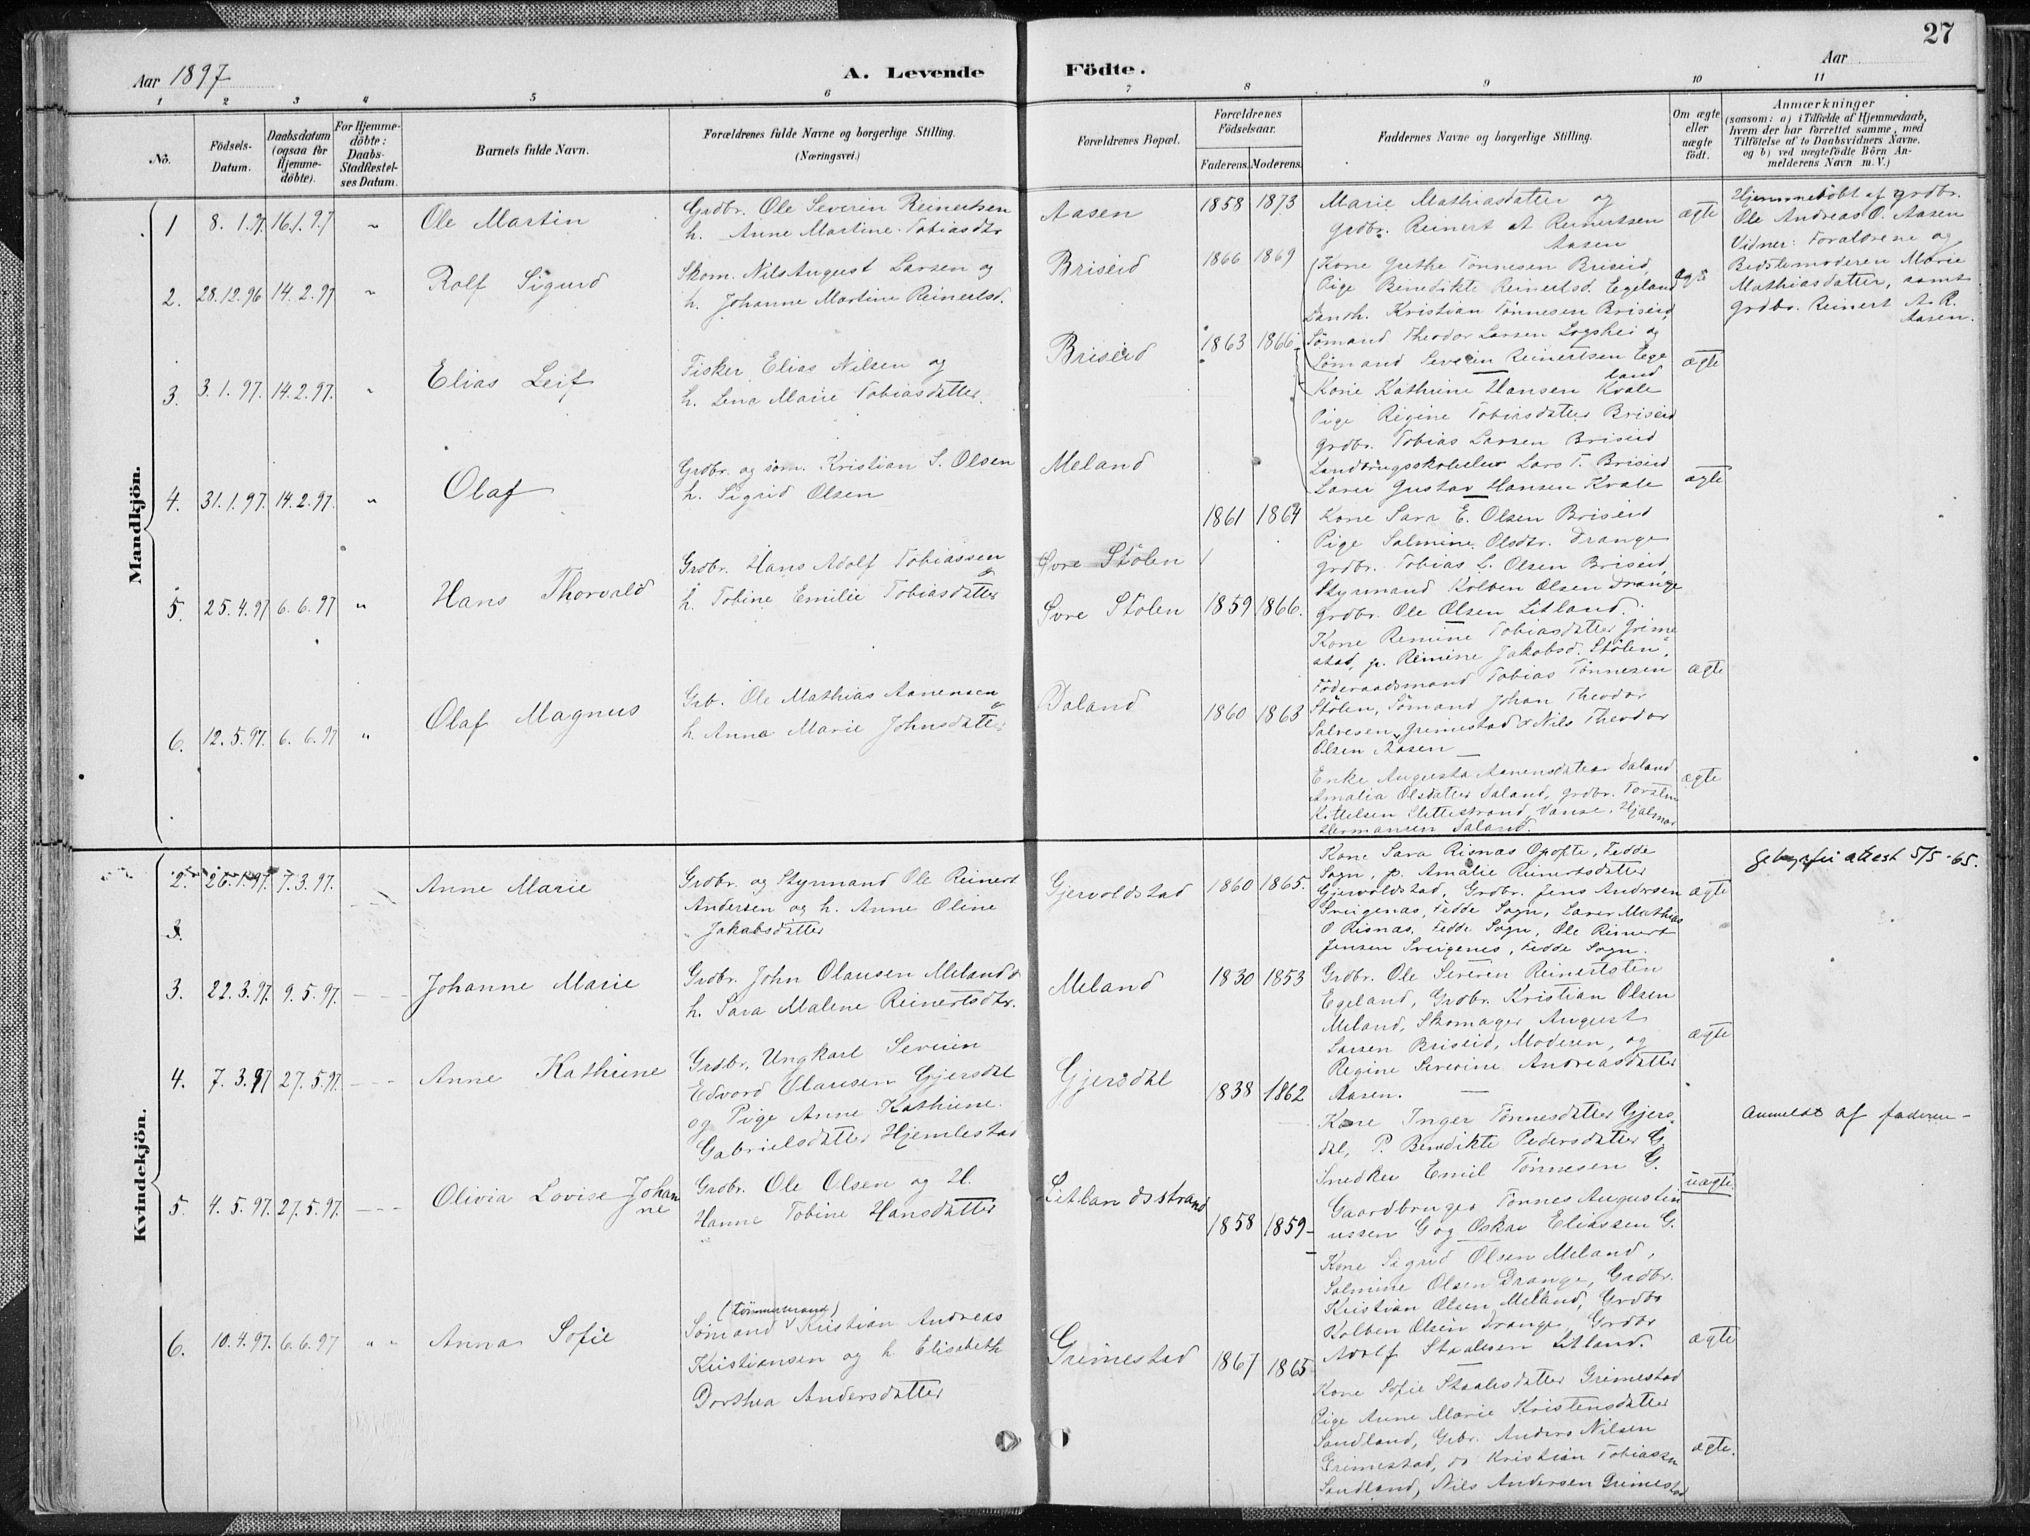 27
Aar 1897
A. Levende
Födte.
Aar
1 2 3 4 5 6 7 8 9 10 11
No.
Födsels-
Datum.
Daabsdatum
(ogsaa for
Hjemme-
döbte).
For Hjemme-
döbte:
Daabs-
Stadfæstel-
ses Datum.
Barnets fulde Navn.
Forældrenes fulde Navne og borgerlige Stilling.
(Næringsvei.)
Forældrenes Bopæl.
Forældrenes
Födselsaar.
Faderens. Moderens.
Faddernes Navne og borgerlige Stilling.
Om ægte
eller
uægte
födt.
Anmærkninger
(saasom: a) i Tilfælde af Hjemmedaab,
hvem der har forrettet samme, med
Tilföielse af to Daabsvidners Navne,
og b) ved uægtefödte Börn An-
melderens Navn m. V.)
Mandkjön.
1 8. 1.97. 16.1.97 " Ole Martin
Grdbr. Ole Severin Reinertsen
h. Anne Martine Tobiasdtr
Aasen
1858 1873
Marie Mathiasdatter og
grdbr. Reinert A Reinertsen
Aasen
ægte
Hjemmedöbt af grdbr.
Ole Andreas O. Aasen
Vidner: Forældrene og
Bedstemoderen Marie
Mathiasdatter, samt
grdbr. Reinert A. R.
Aasen.
2. 28.12.96 14.2.97 " Rolf Sigurd
Skom. Nils August Larsen og
h. Johanne Martine Reinertsd.
Briseid
1866 1869
Kone Grethe Tönnesen Briseid,
Pige Benedikte Reinertsd. Egeland
Landh. Kristian Tönnesen Briseid
Sömand Theodor Larsen Logshei og
Sömand Severin Reinertsen Ege
land
ægte
3. 3.1.97. 14.2.97. " Elias Leif
Fisker Elias Nilsen og
h. Lena Marie Tobiasdatter.
Briseid
1863 1866
Kone Kathrine Hansen Kvale
Pige Regine Tobiasdatter Briseid
grdbr. Tobias Larsen Briseid
Landbrugsskoleelev Lars T. Briseid
Lærer Gustav Hansen Kvale
ægte
4. 31.1.97. 14.2.97. " Olaf
Grdbr. og söm. Kristian S. Olsen
h. Sigrid Olsen
Meland
1861 1864
Kone Sara E. Olsen Briseid
Pige Salmine Olsdtr. Drange
grdbr. Tobias L. Olsen Briseid,
Styrmand Kolben Olsen Drange
grdbr. Ole Olsen Litland.
ægte
5. 25.4.97 6.6.97 " Hans Thorvald
Grdbr. Hans Adolf Tobiassen
og
h. Tobine Emilie Tobiasdatter
Övre Stölen
Övre Stölen
1859 1866.
Kone Remine Tobiasdatter Grime
stad, p. Remine Jakobsd. Stölen,
Föderaadsmand Tobias Tönnesen
Stölen, Sömand Johan Theodor
Salvesen, Grimestad & Nils Theodor
Olsen Aasen
ægte
6. 12.5.97. 6. 6.97 " Olaf Magnus
Grb. Ole Mathias Aanensen
og
h. Anna Marie Johnsdatter
Daland
1860 1863
Enke Augusta Aanensdatter Daland
Amalia Olsdatter Daland, grdbr. Torsten
Kittelsen Slettestrand, Vanse. Hjalmar
Hermansen Daland.
ægte
Kvindekjön.
2. 26.1.97. 7.3.97. Anne Marie
Grdbr. og Styrmand Ole Reinert
Andersen og h. Anne Oline
Jakobsdatter
Gjervoldstad
1860 1865.
Kone Sara Risnæs Opofte, Fedde
Sogn, p. Amalie Reinertsdatter
Gjervoldstad, Grdbr. Jens Andersen
Sveigenæs, Fedde Sogn, Lærer Mathias
O Risnæs, Fedde Sogn, Ole Reinert
Jensen Sveigenes, Fedde Sogn.
ægte
Gebyrfri attest 5/5-65.
3.
3. 22.3.97. 9.5.97. Johanne Marie
Grdbr. John Olausen Meland &
h. Sara Malene Reinertsdtr.
Meland
1830 1853
Grdbr. Ole Severin Reinertsten
Egeland, Grdbr. Kristian Olsen
Meland, Skomager August
Larsen Briseid, Moderen, og
Regine Severine Andreasdatter
Aasen.
ægte
4. 7.3.97 27.5.97. Anne Kathrine
Grdbr. Ungkarl Severin
Edvard Olausen Gjersdal
og Pige Anne Kathrine
Gabrielsdatter Hjemlestad
Gjersdal
1838 1862
Kone Inger Tönnesdatter Gjers-
dal, P. Benedikte Pedersdatter G.
Snedker Emil Tönnesen G.
Gaardbruger Tönnes Augustin
ussen G og Oskar Eliassen G.
uægte
Anmeldt af faderen -
5. 4.5.97. 27.5.97. Olivia Lovise Johan
ne
Grdbr. Ole Olsen og H.
Hanne Tobine Hansdatter
Litlandsstrand
1858 1859
Kone Sigrid Olsen Meland,
Salmine Olsen Drange, Grdbr.
Kristian Olsen Meland, Grdbr
Kolben Olsen Drange, Grdbr
Adolf Staalesen Litland.
ægte
6. 10.4.97. 6.6.97 " " Anna Sofie
(tömmermand)
Sömand Kristian Andreas
Kristiansen og h Elisabeth
Dorthea Andersdatter
Grimestad
1867 1865
Kone Sofie Staalesdatter Grimestad
Pige Anne Marie Kristensdatter
Sandland, Grbr. Anders Nilsen
Grimestad, do Kristian Tobiassen
Sandland, Nils Andersen Grimestad
ægte.